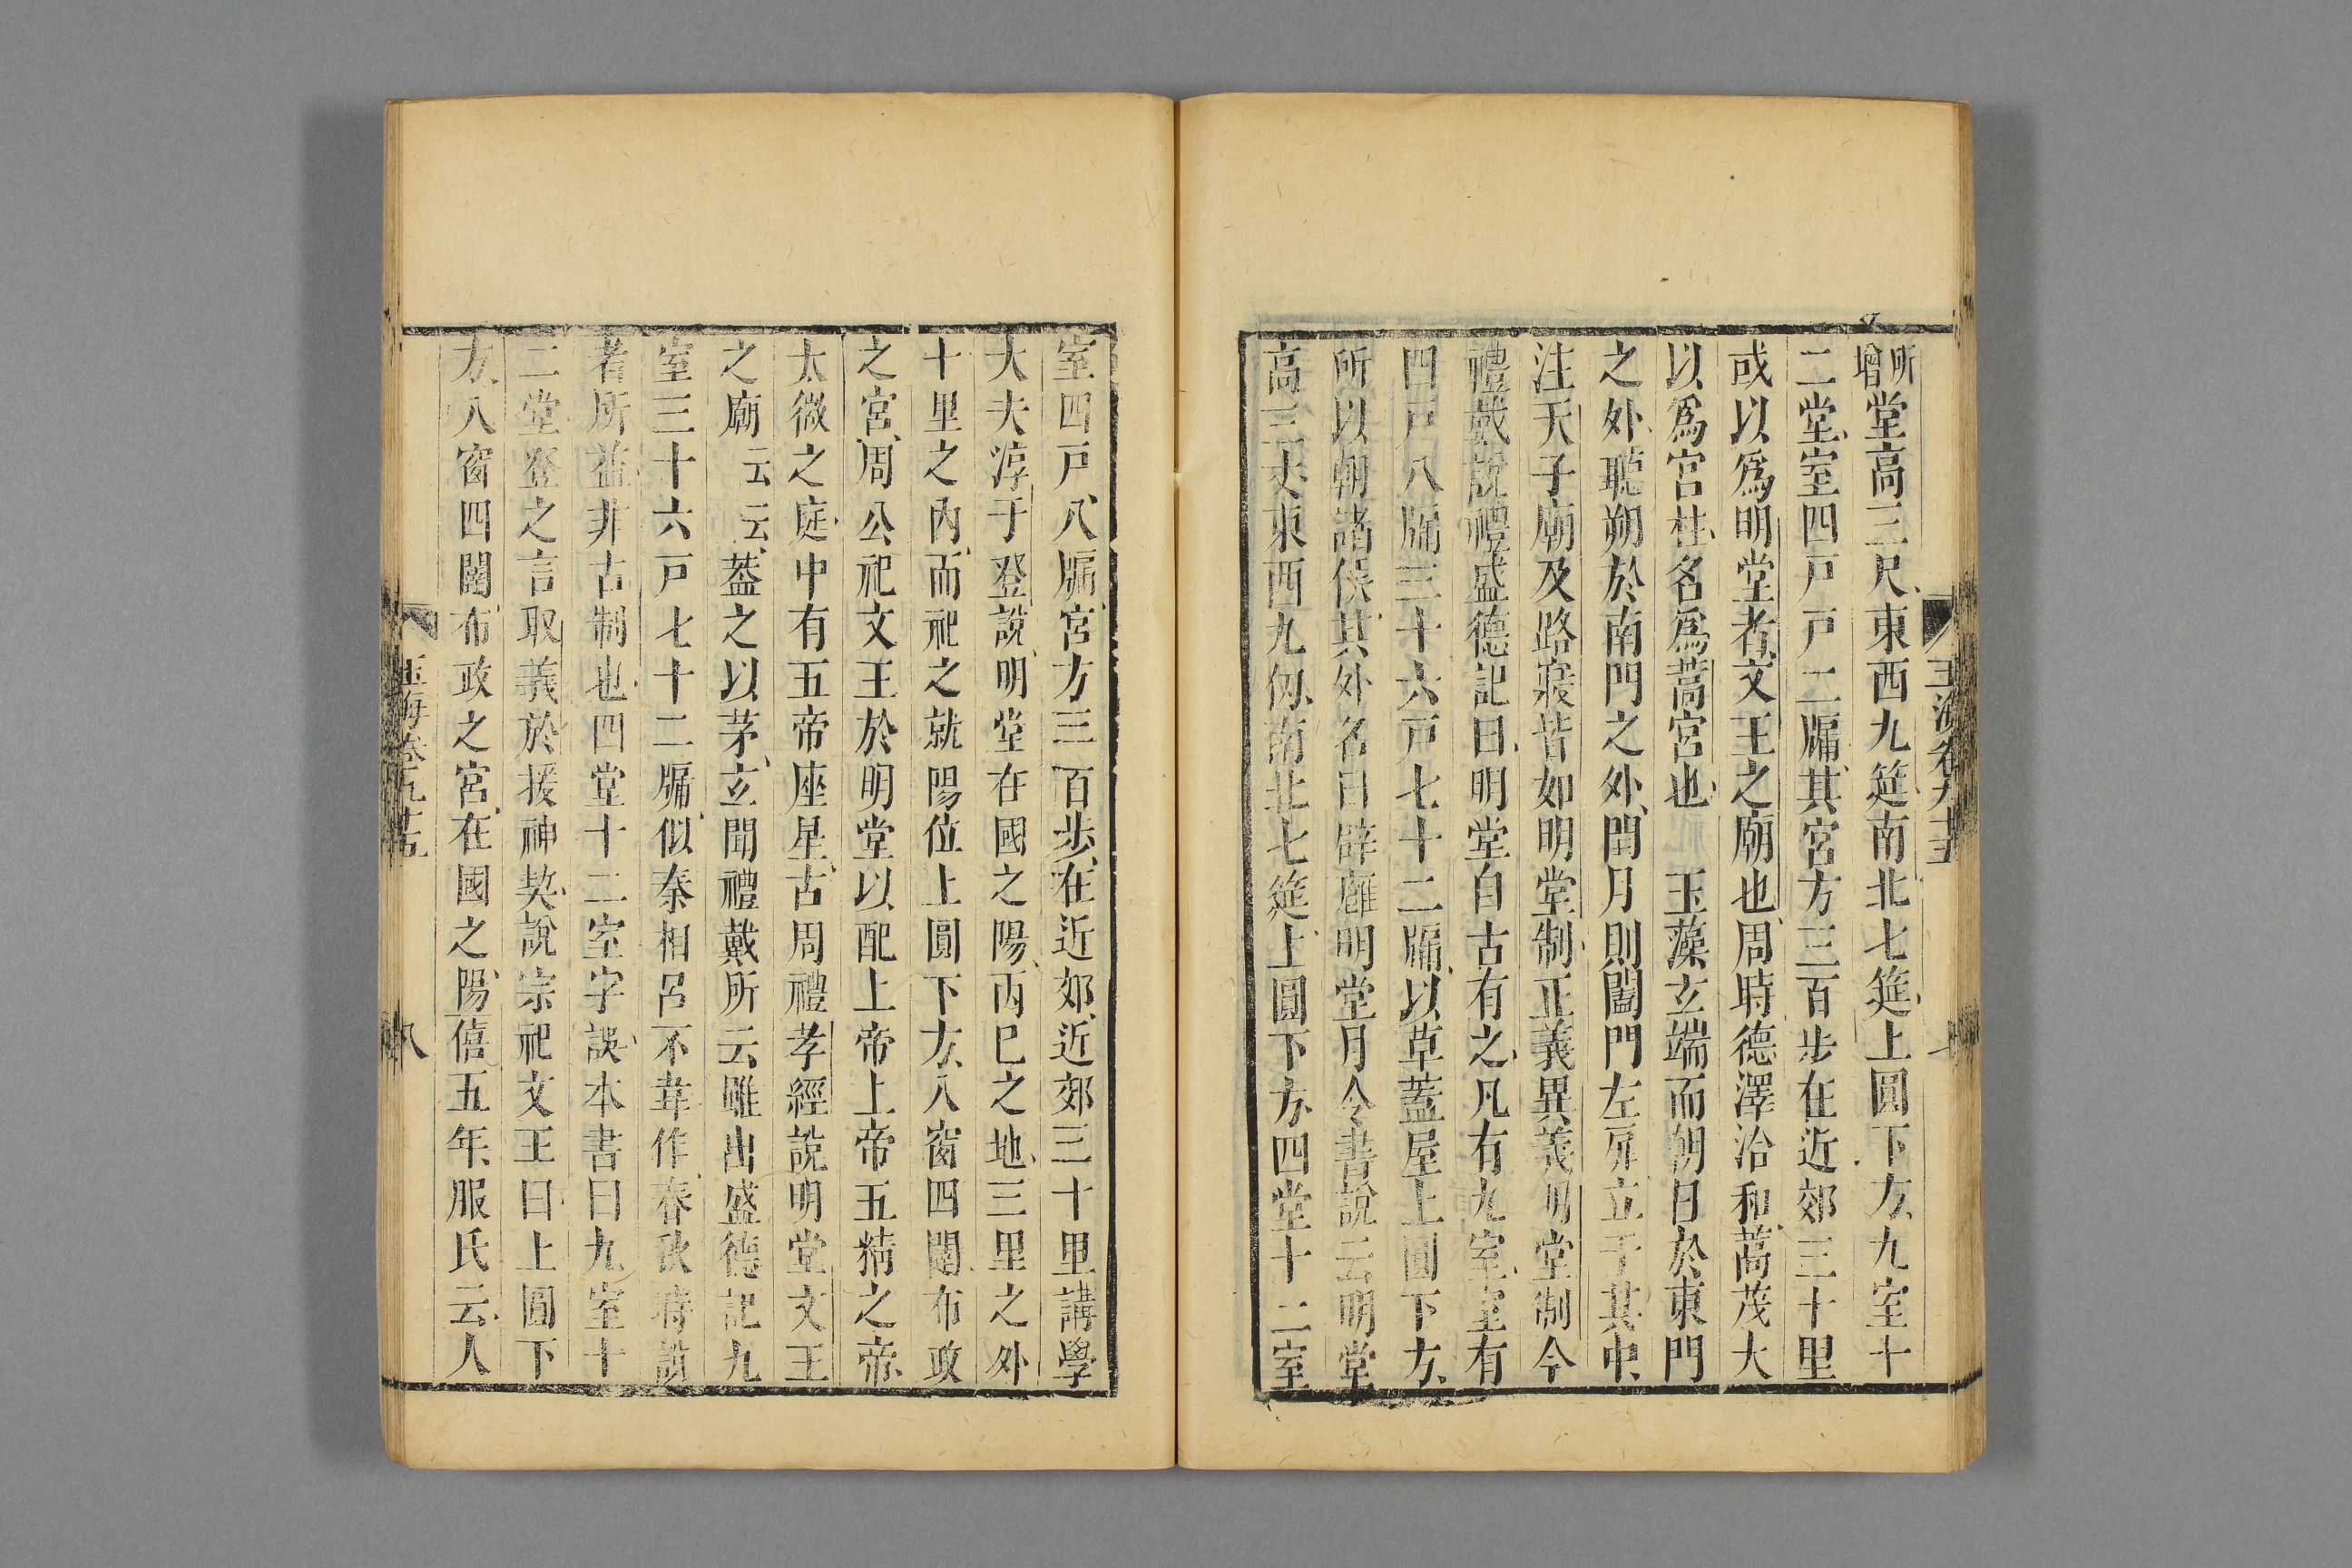 玉海卷九十五
所增堂高三尺東西九筵南北七筵上圓下方九室十
二堂室四戶戶二牖其宮方三百步在近郊三十里
或以爲明堂者文王之廟也周時德澤洽和蒿茂大
以爲宮柱名爲蒿宮也 玉藻玄端而朝日於東門
之外聽朔於南門之外閏月則闔門左扉立于其中
注天子廟及路寢皆如明堂制正義異義明堂制今
禮戴說禮盛德記曰明堂自古有之凡有九室室有
四戶八牖三十六戶七十二牖以草蓋屋上圓下方
所以朝諸侯其外名曰辟廱明堂月令書說云明堂
高三丈東西九仞南北七筵上圓下方四堂十二室
室四戶八牖宮方三百步在近郊近郊三十里講學
大夫淳于登說明堂在國之陽丙巳之地三里之外
十里之內而祀之就陽位上圓下方八窗四闥布政
之宮周公祀文王於明堂以配上帝上帝五精之帝
太微之庭中有五帝座星古周禮孝經說明堂文王
之廟云云葢之以茅玄聞禮戴所云雖出盛德記九
室三十六戶七十二牖似秦相呂不韋作春秋時說
者所益非古制也四堂十二室字誤本書曰九室十
二堂登之言取義於援神契說宗祀文王曰上圓下
方八窗四闥布政之宮在國之陽僖五年服氏云人
玉海卷九十五 八